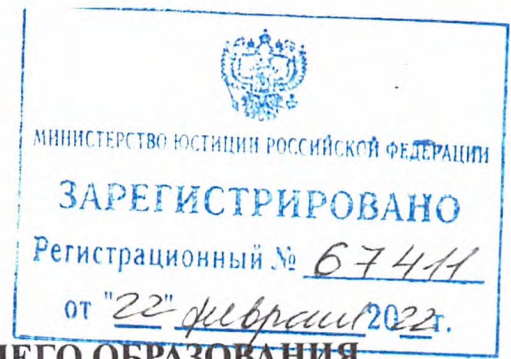 МИНИСТЕРСТВО ЮСТИЦИИ РОССИЙСКОЙ ФЕДЕРАЦИИ
ЗАРЕГИСТРИРОВАНО
Регистрационный № 67411
от "22" февраля 2022г.
ОБРАЗОВАНИЯ